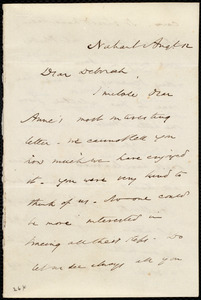 Nahant Aug
Dear Deborah,
I enclose dear
Anne's most interesting
letter. We cannot tell you
how much we have enjoyed
it. You were very kind to
think of us. No one could
be more interested in
tracing all these steps. Do
let me see always all you